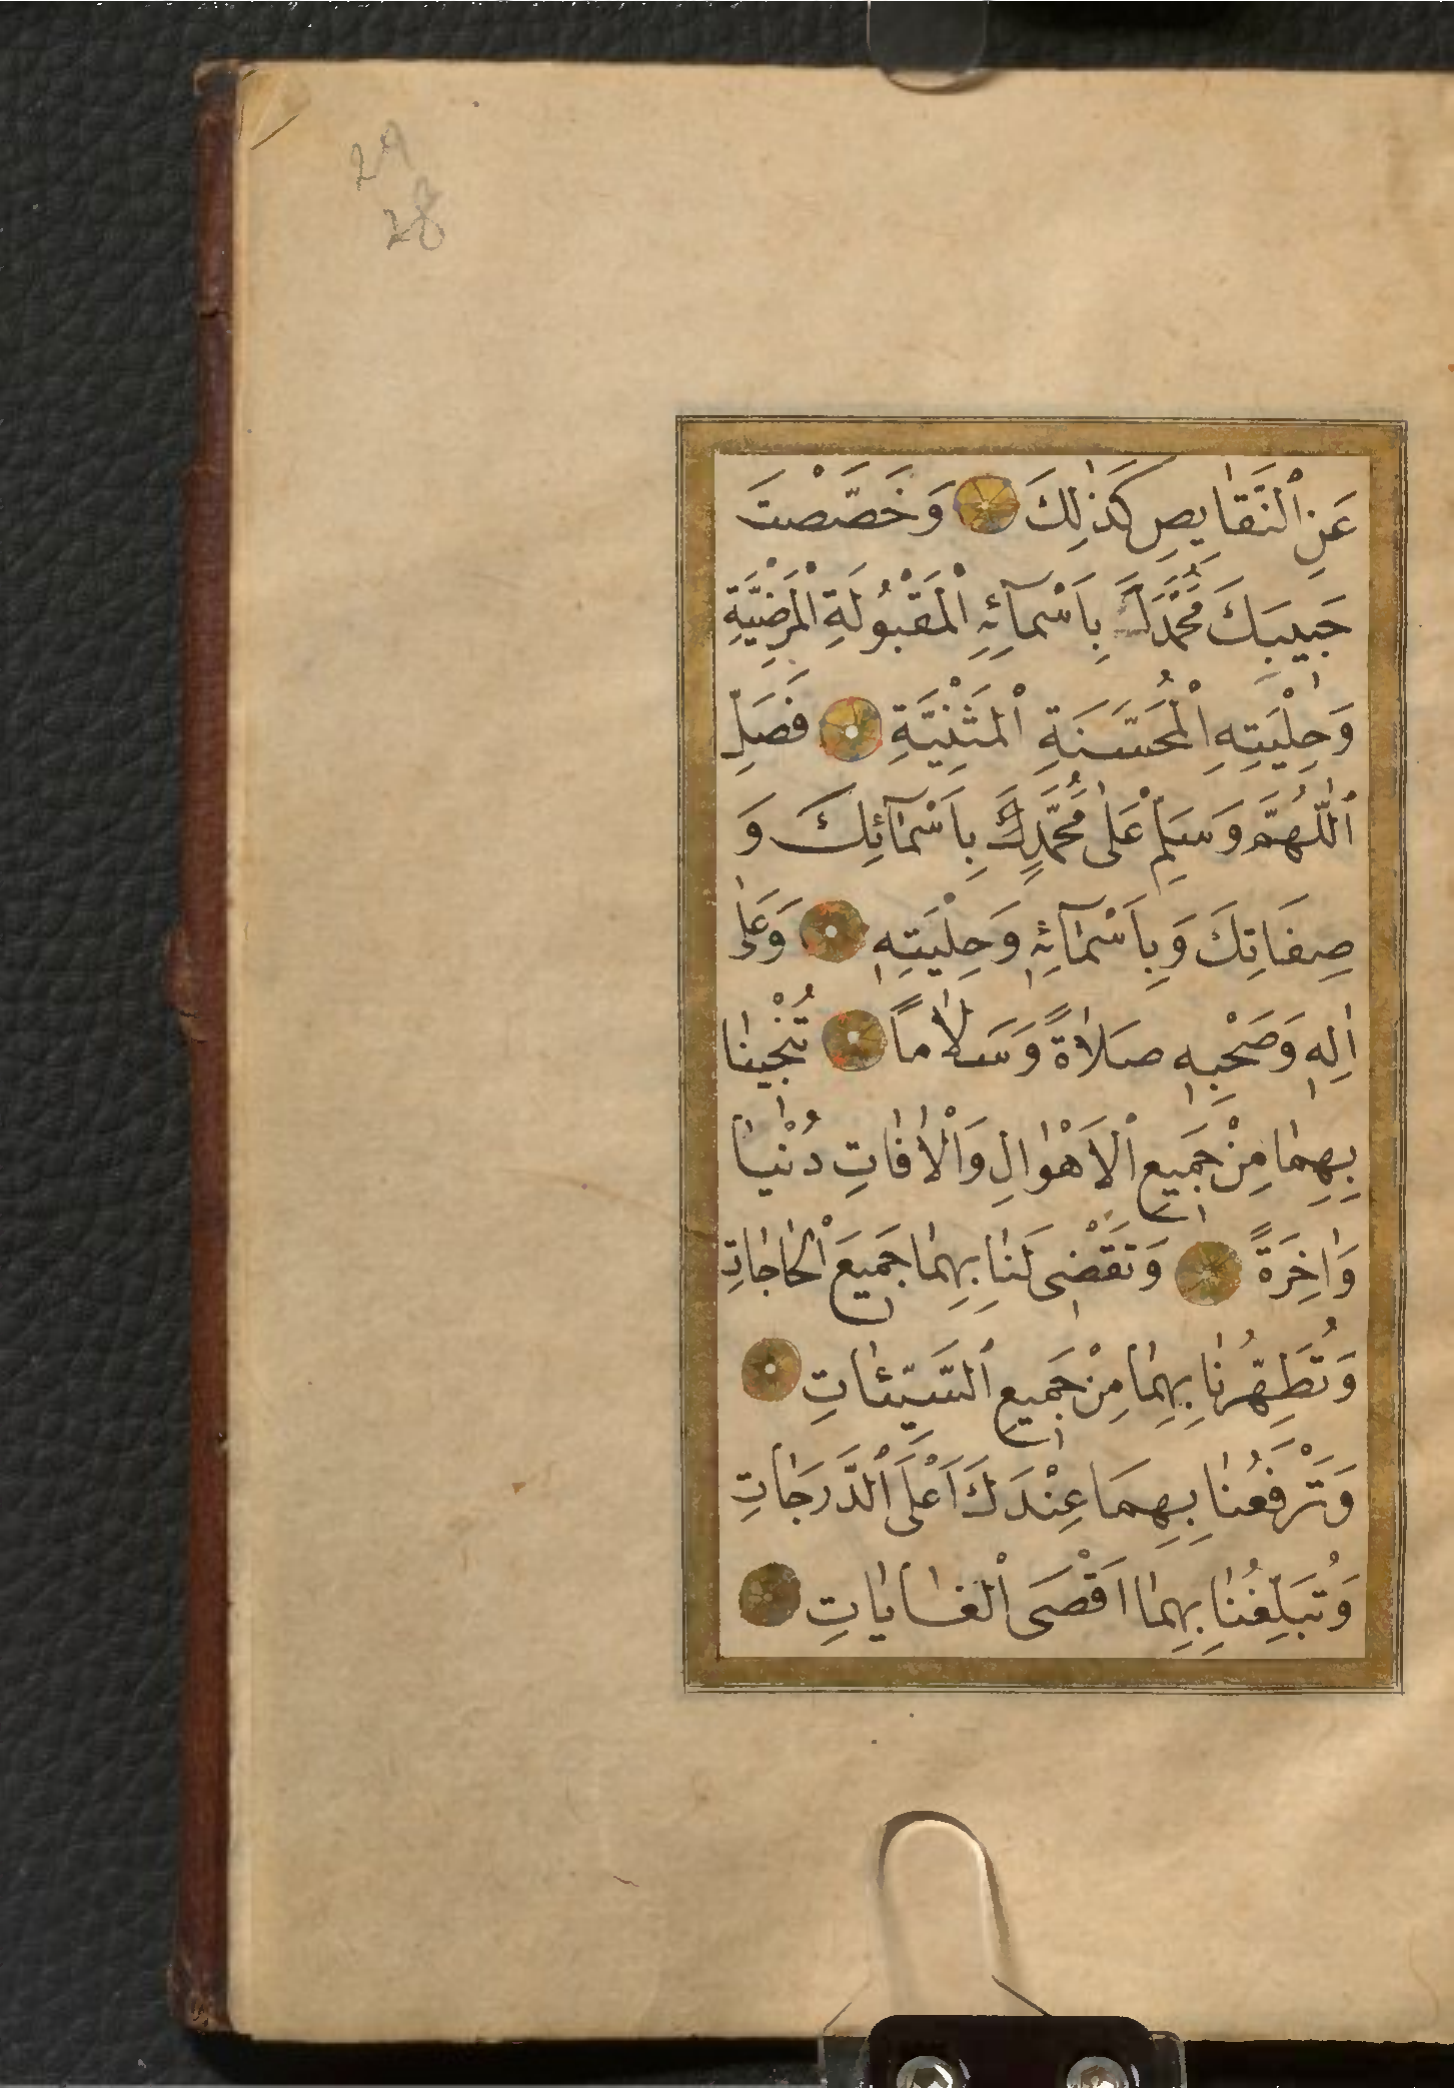 29
28
عَنِ ٱلنَّقَايِصِ كَذٰلِكَ وَخَصَّصْتَ
حَبِيبَكَ مُحَمَّدَ بِاَسْمَآئِهِ ٱلْمَقْبُولَةِ ٱلْمَرْضِيَّةِ
وَحِلْيَتِهِ ٱلْمُحَسَّنَةِ ٱلْمَثْنِيَّةِ فَصَلِّ
ٱللّٰهُمَّ وَسَلِّمْ عَلٰى مُحَمَّدٍ بِاَسْمَآئِكَ وَ
صِفَاتِكَ وَبِاَسْمَآئِهٖ وَحِلْيَتِهٖ وَعَلٰى
اٰلِهٖ وَصَحْبِهٖ صَلٰاةً وَسَلٰاماً تُنْجِينٰا
بِهِمٰا مِنْ جَمِيعِ ٱلْاَهْوٰالِ وَٱلْاٰفٰاتِ دُنْيٰا
وَاٰخِرَةً وَتَقْضٖى لَنٰا بِهِمٰا جَمِيعَ ٱلْحٰاجٰاتِ
وَتُطَهِّرُنٰا بِهِمٰا مِنْ جَمٖيعِ ٱلسَّيِّئٰاتِ
وَتَرْفَعُنٰا بِهِمَا عِنْدَكَ اَعْلَى ٱلدَّرَجٰاتِ
وَتُبَلِّغُنٰا بِهِمٰا اَقْصَى ٱلْغٰايٰاتِ